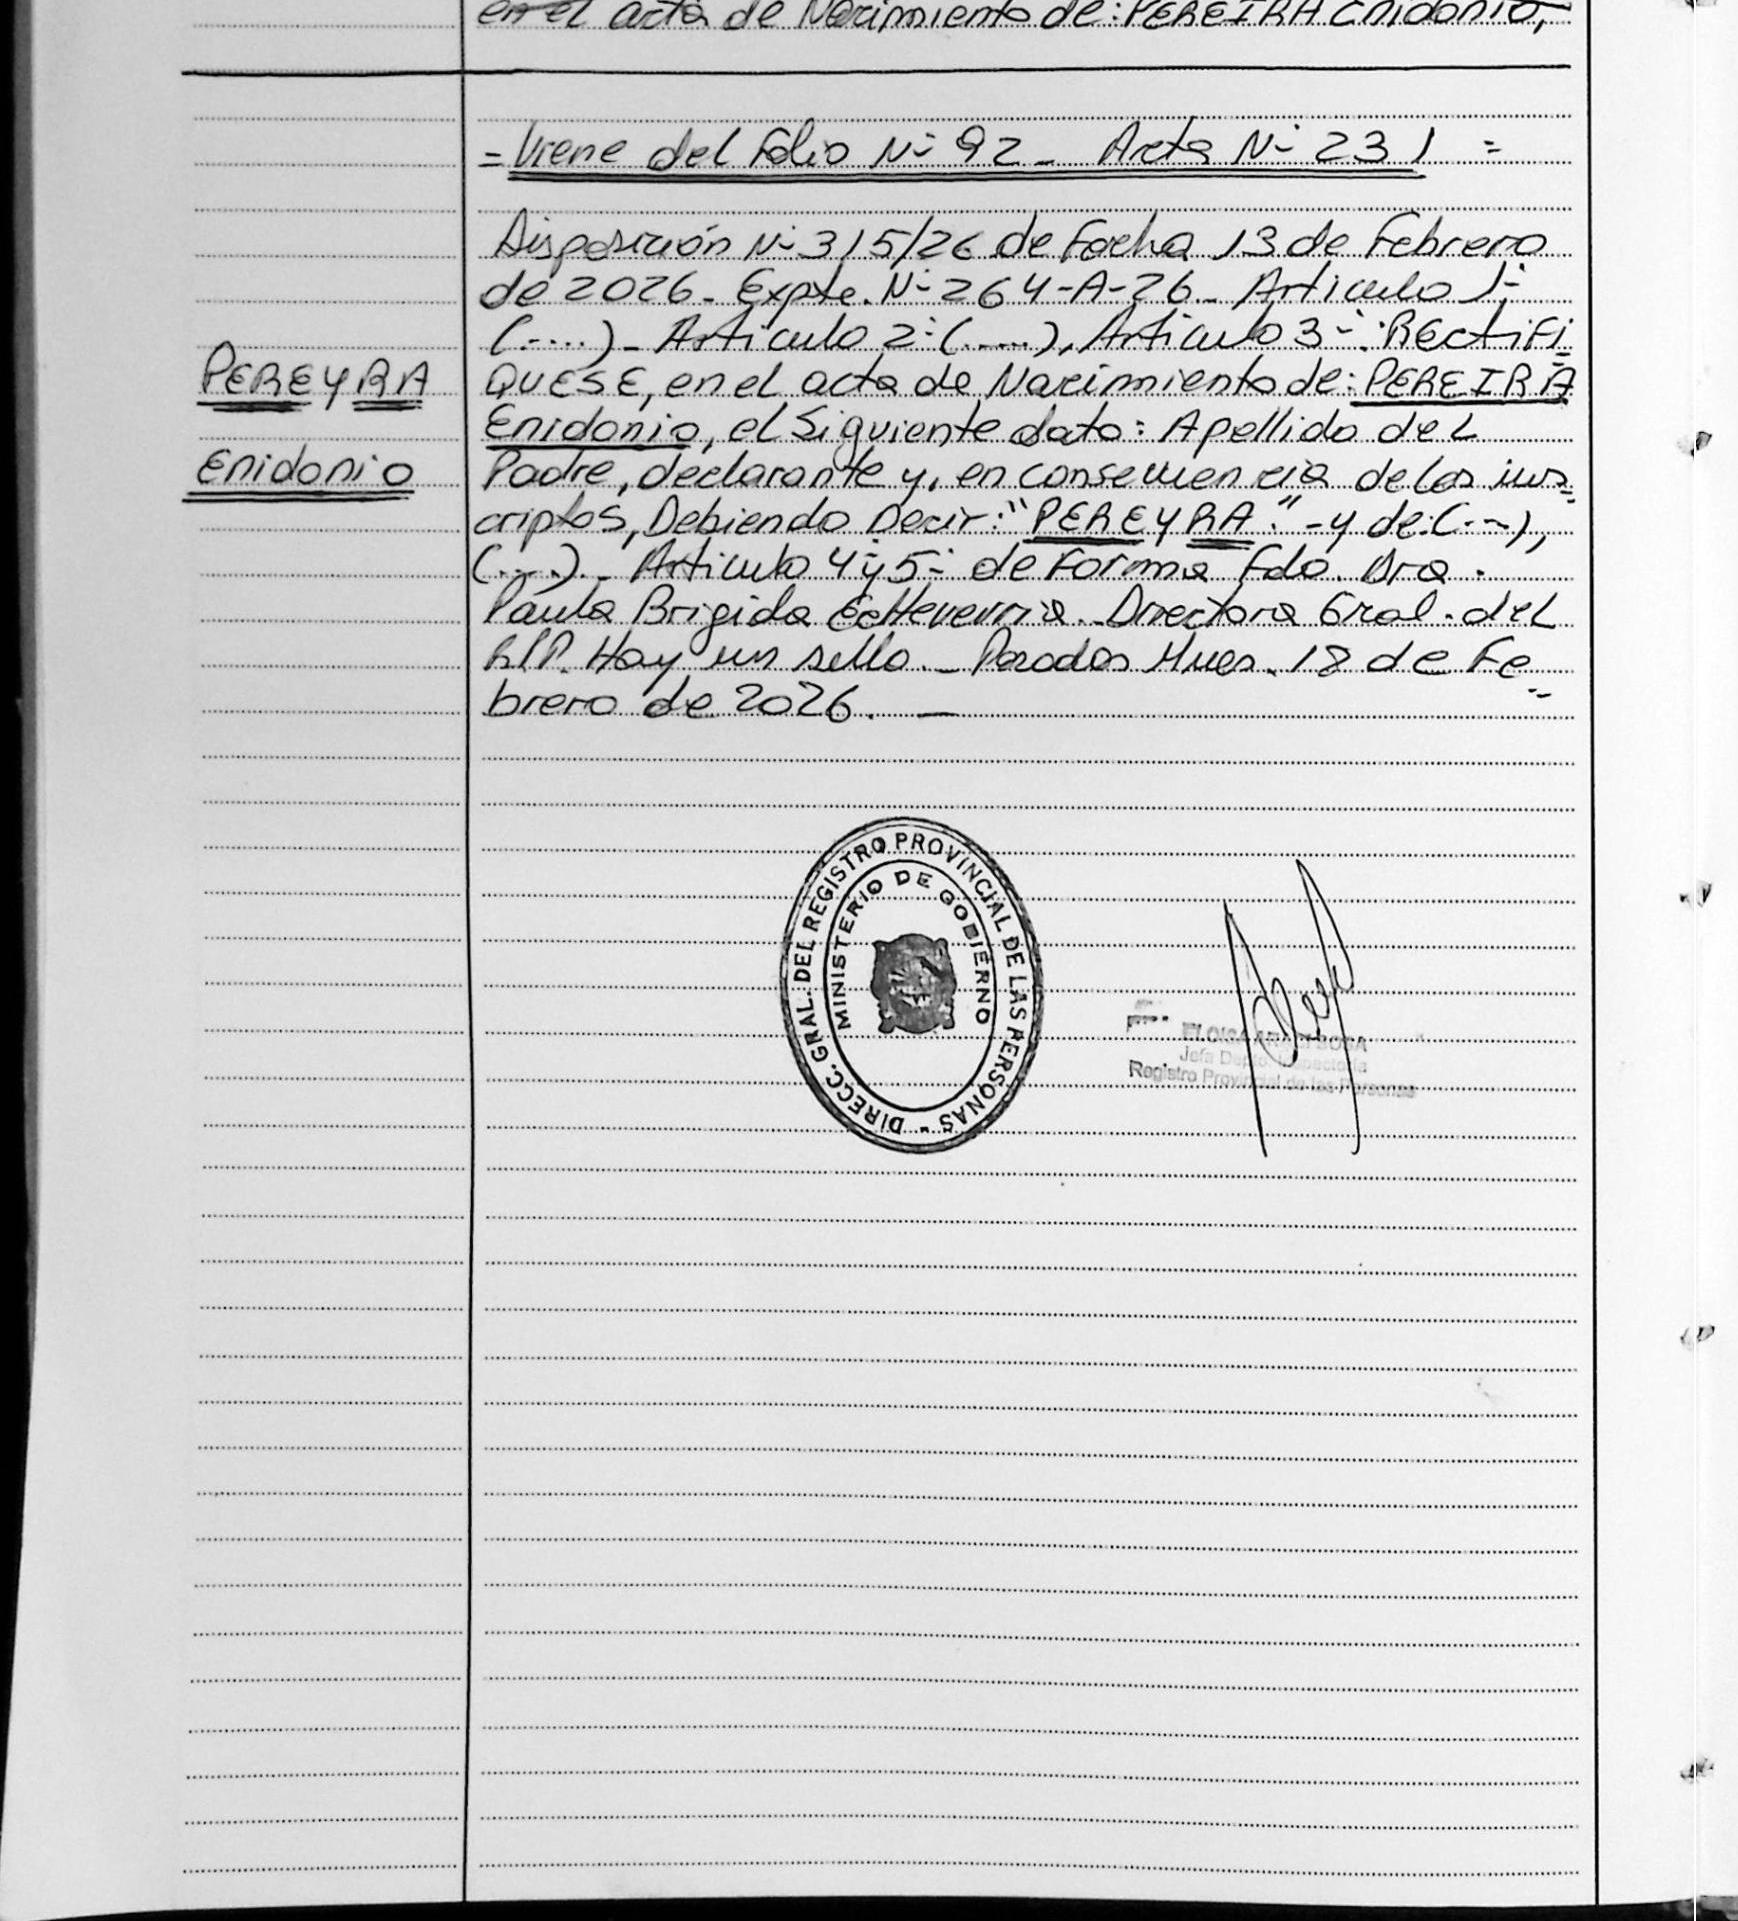 en el acta de Nacimiento de: PEREIRA Enidonio,
= Viene del Folio Nº 92 - Acta Nº 231 =
Disposición Nº 315/26 de Fecha 13 de Febrero
de 2026 - Expte. Nº 264-A-26 - Articulo 1º:
(.....) - Articulo 2º: (.....), Articulo 3º: RECTIFI
QUESE, en el acta de Nacimiento de: PEREIRA
Enidonio, el siguiente dato: Apellido del
Padre, declarante y, en consecuencia de los ins=
criptos, Debiendo Decir: "PEREYRA." - y de: (---),
(....) - Articulo 4º y 5º de Forma Fdo. Dra.
Paula Brigida Echeverria - Directora Gral. del
R.P.P. Hay un sello. - Posadas Mnes. 18 de Fe=
brero de 2026. —
PEREYRA
Enidonio
DIRECC. GRAL. DEL REGISTRO PROVINCIAL DE LAS PERSONAS -
MINISTERIO DE GOBIERNO
ELOISA SOSA
Jefa Depto. Inspectoría
Registro Provincial de las Personas